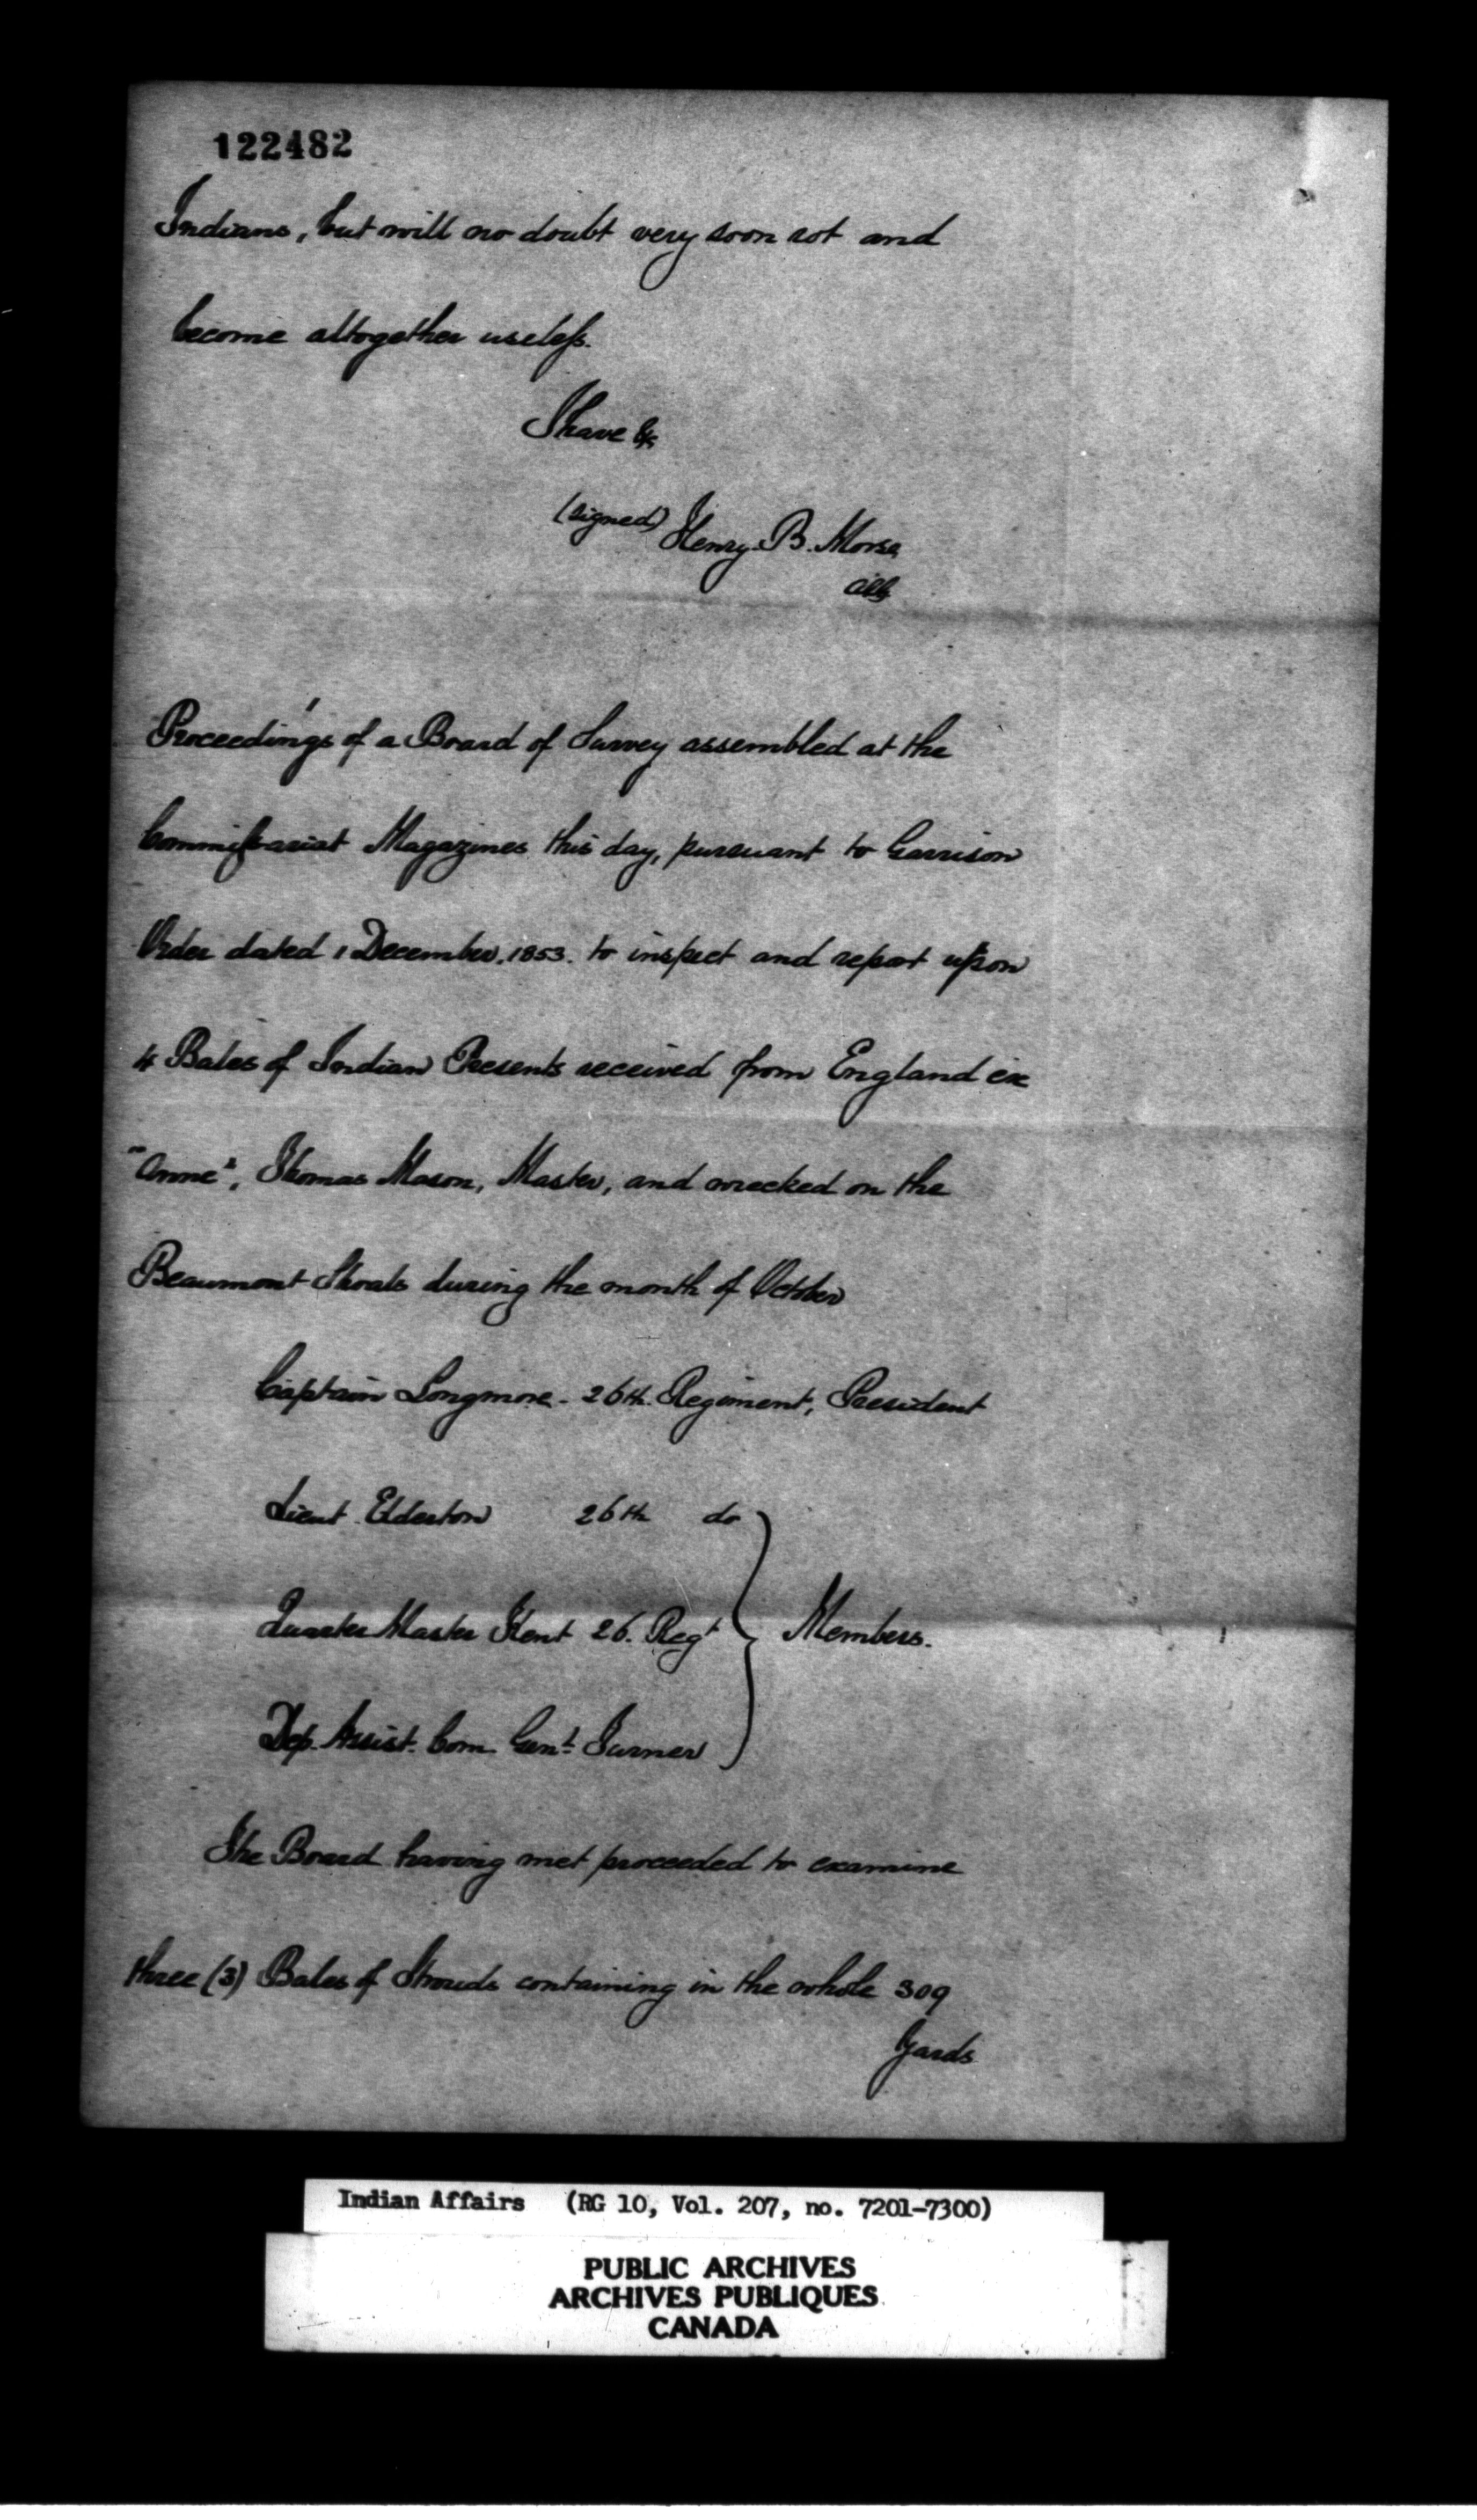 122482
Indians, but will no doubt very soon rot and
become altogether useless.
I have &c
(signed) Henry. B. Morse
Proceedings of a Board of Survey assembled at the
Commissariat Magazines this day, pursuant to Garrison
Order dated 1 December. 1853. to inspect and report upon
4 Bales of Indian Presents received from England ex
"Anne", Thomas Mason, Master, and wrecked on the
Beaumont Shoals during the month of October
Captain Longmore - 26th. Regiment, President
Lieut. Elderton 26th do
Quarter Master Kent 26. Regt Members.
Dep. Assist. Com. Genl. Turner
The Board having met proceeded to examine
three (3) Bales of Strouds containing in the whole 309
yards
Indian Affairs (RG 10, Vol. 207, no. 7201-7300)
PUBLIC ARCHIVES
ARCHIVES PUBLIQUES
CANADA